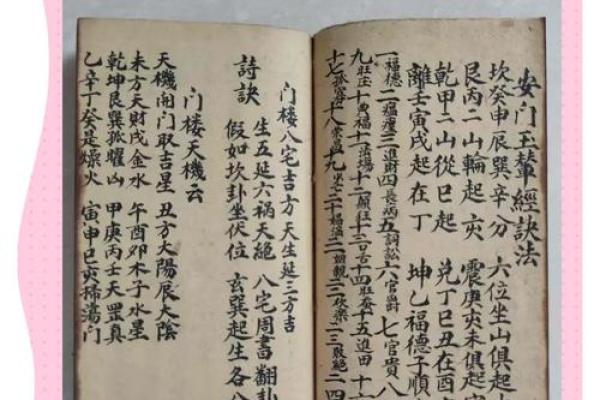 安门玉輦經訣法
坎癸申辰巽辛分 六位坐山俱起
艮丙二山輪起亥 震庚亥未俱起
乾甲二山從巳起 兌丁巳丑在酉
離壬寅戌起在丁 坤乙福德子順
一福德二瘟𤸷三進財四長病五詞訟六官爵七官貴八
九旺庄十興福十一法場十二顛狂十三口舌十四旺蚕十五進田十六
十七孤寡十八榮昌十九少亡二十娼淫二一親姻二二欢樂二三敗絶二四
门楼八宅吉方 天生延三方吉
詩訣
生五延六祸天絶 八宅周書翻卦
假如坎卦坐伏位 玄巽起生各八
门楼天機云
天機開门取吉星 丑方太陽辰太陰
未方天財戌金水 午酉卯木子水星
乾坤艮巽孤曜凶 甲庚丙壬天罡真
乙辛丁癸是燥火 寅申巳亥掃蕩门